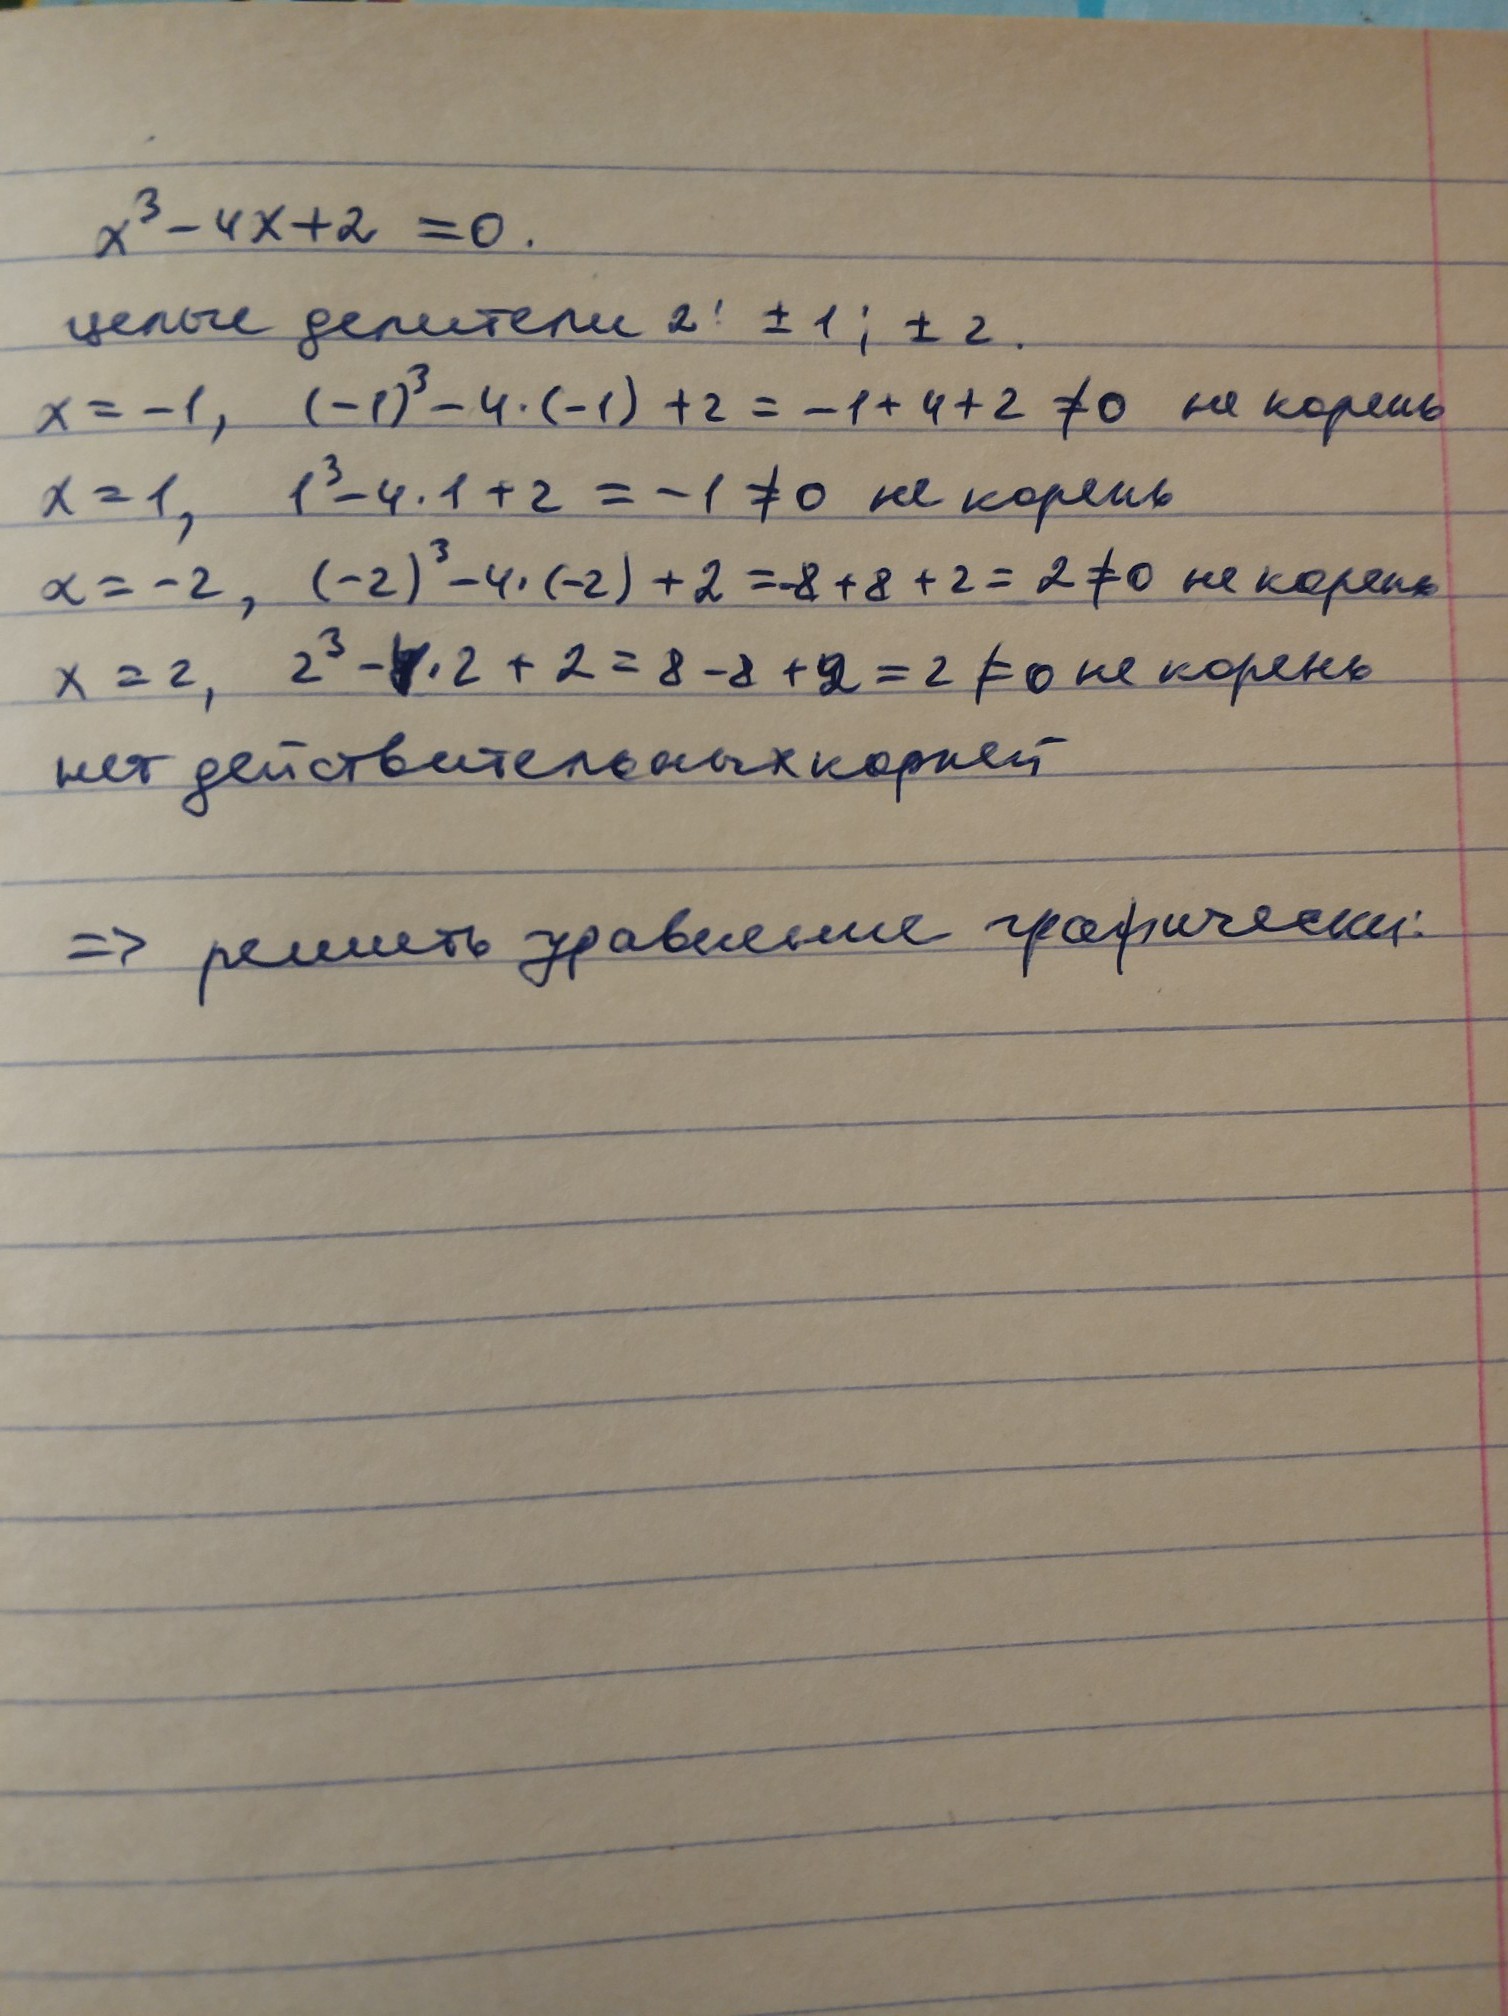 x³ - 4x + 2 = 0.
целые делители 2: ± 1; ± 2.
x = -1, (-1)³ - 4·(-1) + 2 = -1 + 4 + 2 ≠ 0 не корень
x = 1, 1³ - 4·1 + 2 = -1 ≠ 0 не корень
x = -2, (-2)³ - 4·(-2) + 2 = -8 + 8 + 2 = 2 ≠ 0 не корень
x = 2, 2³ - 4·2 + 2 = 8 - 8 + 2 = 2 ≠ 0 не корень
нет действительных корней
=> решить уравнение графически: